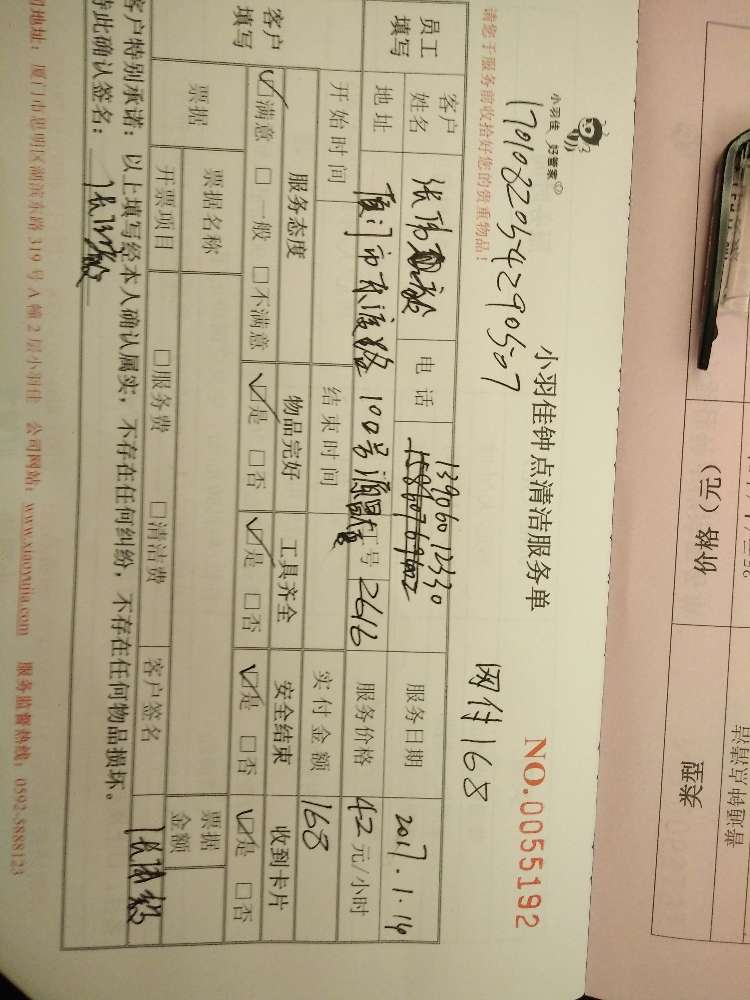 小羽佳 好管家
小羽佳钟点清洁服务单
NO.0055192
请您于服务前收拾好您的贵重物品!
网付168
员工填写
客户姓名
电话
13906012330
服务日期
2017.1.14
地址
厦门市东渡路100号源昌
工号
2616
服务价格
42元/小时
开始时间
结束时间
实付金额
168
客户填写
服务态度
物品完好
工具齐全
安全结束
收到卡片
☑满意 □一般 □不满意
☑是 □否
☑是 □否
☑是 □否
☑是 □否
票据
票据名称
票据金额
开票项目
□服务费 □清洁费
客户签名
客户特别承诺:以上填写经本人确认属实,不存在任何纠纷,不存在任何物品损坏。
此确认签名:
司地址:厦门市思明区湖滨东路319号A幢2层小羽佳 公司网站:www.xiaoyujia.com 服务监督热线:0592-5888123
价格(元)
类型
普通钟点
清洁